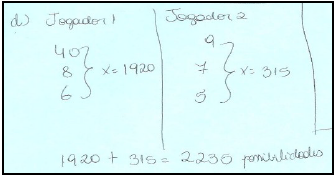 d) Jogador 1
40
8 } x = 1920
6
Jogador 2
9
7 } x = 315
5
1920 + 315 = 2235 possibilidades